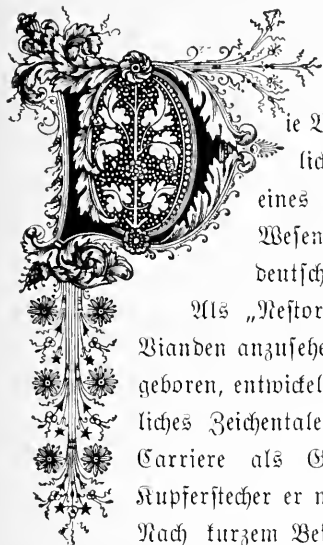 Die
lich
eines
Weſen
deutſch
Als „Neſtor
Vianden anzuſehe
geboren, entwickel
liches Zeichentale
Carriere als
Kupferſtecher er
Nach kurzem